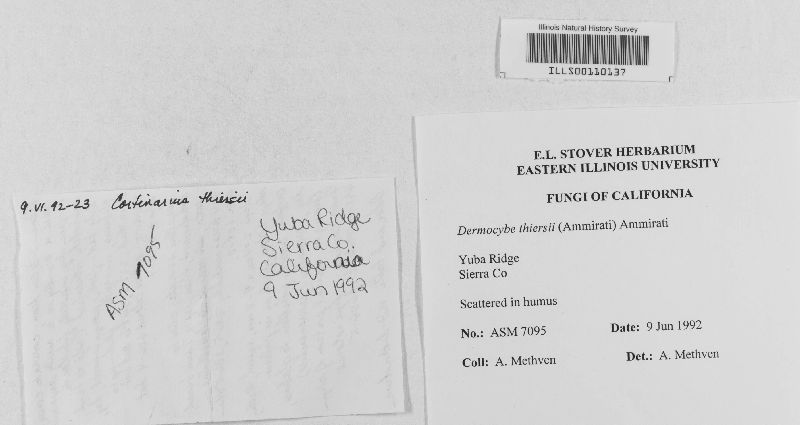 Illinois Natural History Survey
ILLS00110137
9.VI.92-23 Cortinarius thiersii
ASM 7095
Yuba Ridge
Sierra Co.
California
9 Jun 1992
E.L. STOVER HERBARIUM
EASTERN ILLINOIS UNIVERSITY
FUNGI OF CALIFORNIA
Dermocybe thiersii (Ammirati) Ammirati
Yuba Ridge
Sierra Co
Scattered in humus
No.: ASM 7095 Date: 9 Jun 1992
Coll: A. Methven Det.: A. Methven